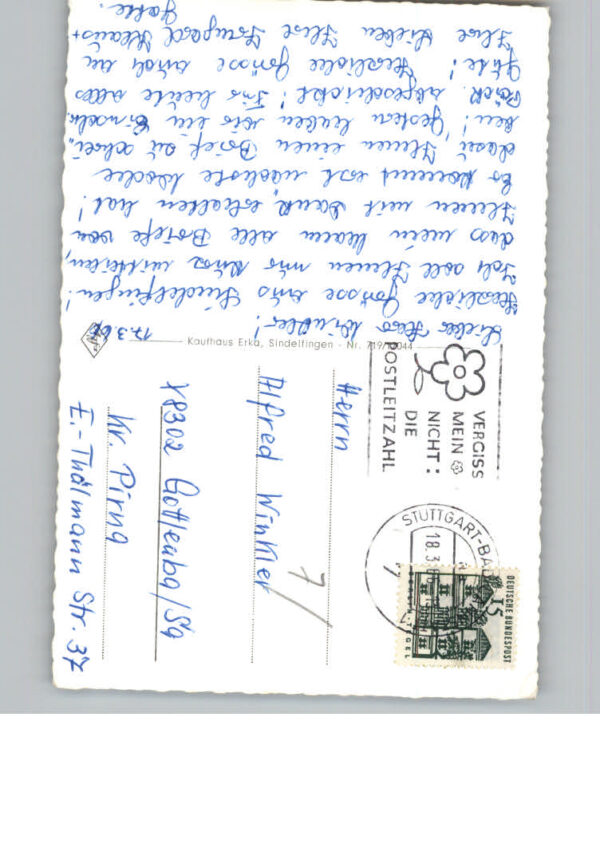 17.3.67
Lieber Herr Winkler!
Herzliche Grüsse aus Sindelfingen!
Ich soll Ihnen nur kurz mitteilen,
dass mein Mann alle Briefe von
Ihnen mit Dank erhalten hat!
Er kommt erst nächste Woche
dazu Ihnen einen Brief zu schrei-
ben! Gestern haben wir ein
Päck. abgeschickt! Für heute alles
Gute! Herzliche Grüsse auch an
Ihre Lieben Ihre Irmgard +
Gatte.
Kaufhaus Erka, Sindelfingen - Nr. 719/
VERGISS
MEIN
NICHT:
DIE
POSTLEITZAHL
STUTTGART-BAD
18.3
DEUTSCHE BUNDESPOST
15
TEGEL
Herrn
Alfred Winkler
X8302 Gottleuba/Sa
Kr. Pirna
E.-Thälmann Str. 37
7